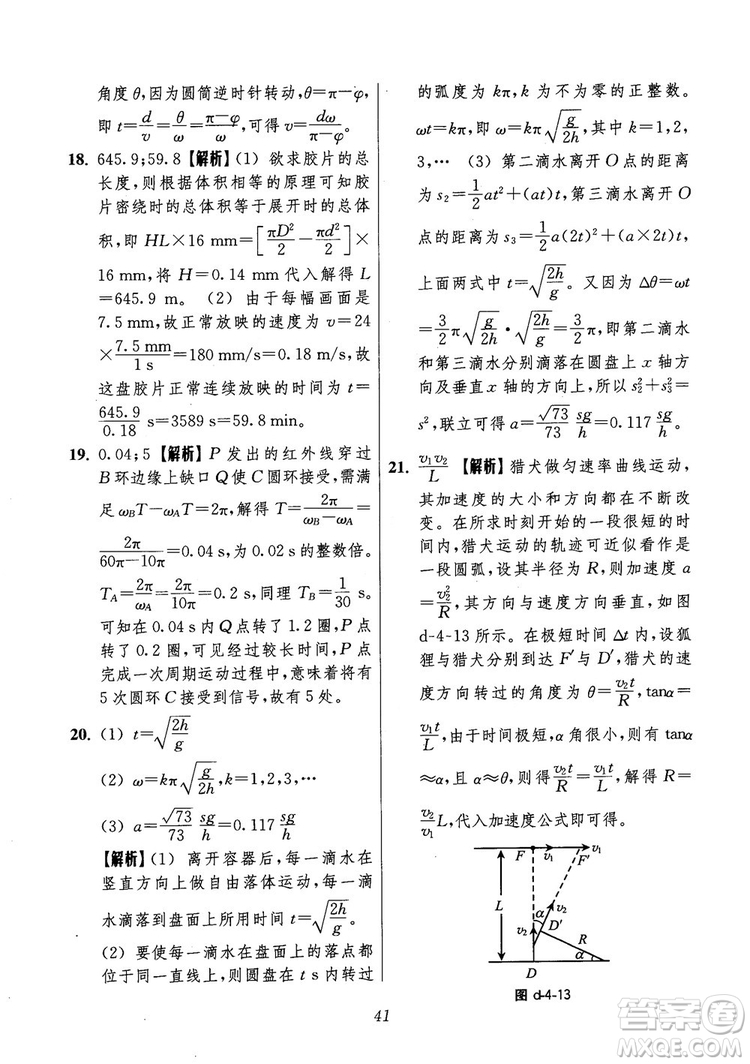 角度θ,因为圆筒逆时针转动,θ=π−φ,
即 t=d/v=θ/ω=(π−φ)/ω,可得 v=dω/(π−φ).
18. 645.9;59.8 【解析】(1) 欲求胶片的总
长度,则根据体积相等的原理可知胶
片密绕时的总体积等于展开时的总体
积,即 HL×16 mm=[πD²/2−πd²/2]×
16 mm,将 H=0.14 mm 代入解得 L=
645.9 m. (2) 由于每幅画面是
7.5 mm,故正常放映的速度为 v=24
×7.5 mm/1 s=180 mm/s=0.18 m/s. 故
这盘胶片正常连续放映的时间为 t=
645.9/0.18 s=3589 s=59.8 min.
19. 0.04;5 【解析】 P 发出的红外线穿过
B 环边缘上缺口 Q 使 C 圆环接受,需满
足 ω_B T−ω_A T=2π,解得 T=2π/(ω_B−ω_A)=
2π/(60π−10π)=0.04 s,为 0.02 s 的整数倍.
T_A=2π/ω_A=2π/10π=0.2 s,同理 T_B=1/30 s.
可知在 0.04 s 内 Q 点转了 1.2 圈,P 点
转了 0.2 圈,可见经过较长时间,P 点
完成一次周期运动过程中,意味着将有
5 次圆环 C 接受到信号,故有 5 处.
20. (1) t=√(2h/g)
(2) ω=kπ√(g/2h),k=1,2,3,…
(3) a=√73/73 sg/h=0.117 sg/h
【解析】(1) 离开容器后,每一滴水在
竖直方向上做自由落体运动,每一滴
水滴落到盘面上所用时间 t=√(2h/g).
(2) 要使每一滴水在盘面上的落点都
位于同一直线上,则圆盘在 t s 内转过
的弧度为 kπ,k 为不为零的正整数.
ωt=kπ,即 ω=kπ√(g/2h),其中 k=1,2,
3,… (3) 第二滴水离开 O 点的距离
为 s₂=1/2 at²+(at)t,第三滴水离开 O
点的距离为 s₃=1/2 a(2t)²+(a·2t)t,
上面两式中 t=√(2h/g). 又因为 Δθ=ωt
=3/2 π√(g/2h)·√(2h/g)=3/2 π,即第二滴水
和第三滴水分别滴落在圆盘上 x 轴方
向及垂直 x 轴的方向上,所以 s₂²+s₃²=
s²,联立可得 a=√73/73 sg/h=0.117 sg/h.
21. v₁v₂/L 【解析】猎犬做匀速率曲线运动,
其加速度的大小和方向都在不断改
变. 在所求时刻开始的一段很短的时
间内,猎犬运动的轨迹可近似看作是
一段圆弧,设其半径为 R,则加速度 a
=v₂²/R,其方向与速度方向垂直,如图
d-4-13 所示. 在极短时间 Δt 内,设狐
狸与猎犬分别到达 F′与 D′,猎犬的速
度方向转过的角度为 θ=v₂t/R,tanα=
v₁t/L,由于时间极短,α 角很小,有 tanα
≈α,且 α=θ,则得 v₂t/R=v₁t/L,解得 R=
v₂/v₁ L,代入加速度公式即可得.
F v₁ F′ v₁
L
α v₂
v₂ D′ R
α
D
图 d-4-13
41
答案圈
MXQE.COM